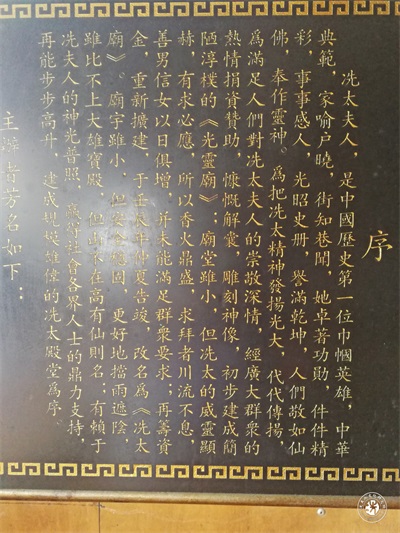 序
冼太夫人，是中國歷史第一位巾幗英雄，中華
典範，家喻户曉，街知巷聞，她卓著功勛，件件精
彩，事事感人，光昭史册，譽滿乾坤，人們敬如仙
佛，奉作靈神。為把冼太精神發揚光大，代代傳揚，
為滿足人們對冼太夫人的崇敬深情，經廣大群衆的
熱情捐資贊助，慷慨解囊，雕刻神像，初步建成簡
陋淳樸的《光靈廟》；廟堂雖小，但冼太的威靈顯
赫，有求必應，所以香火鼎盛，求拜者川流不息，
善男信女以日俱增，并未能滿足群衆要求；再籌資
金，重新擴建，于壬辰年仲夏告竣，改名為《冼太
廟》。廟宇雖小，但安全穩固，更好地擋雨遮陰，
雖比不上大雄寶殿，但山不在高有仙則名；有賴于
冼夫人的神光普照，贏得社會各界人士的鼎力支持，
再能步步高升，建成規模雄偉的冼太殿堂為序。
主緣者芳名如下：